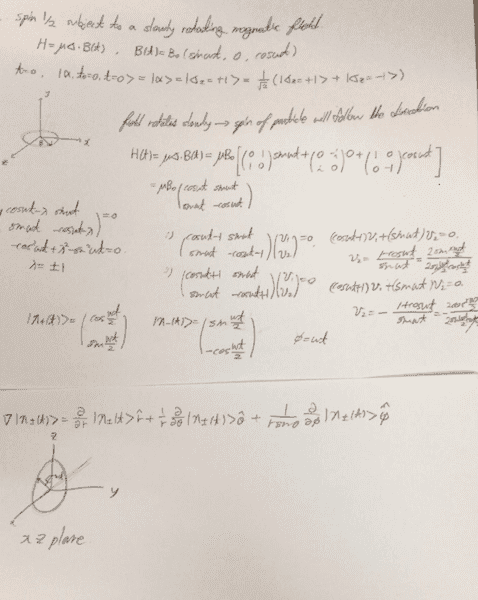 spin 1/2 subject to a slowly rotating magnetic field
H=μσ·B(t), B(t)=B₀(sinωt, 0, cosωt)
t=0, |α, t₀=0, t=0> = |α> = |σz=+1> = 1/√2 (|σz=+1> + |σz=-1>)
field rotates slowly → spin of particle will follow the direction
H(t)=μσ·B(t)=μB₀[(0 1; 1 0)sinωt+(0 -i; i 0)0+(1 0; 0 -1)cosωt]
=μB₀(cosωt sinωt; sinωt -cosωt)
(cosωt-λ sinωt; sinωt -cosωt-λ)=0
-cos²ωt+λ²-sin²ωt=0.
λ=±1
(cosωt-1 sinωt; sinωt -cosωt-1)(v₁; v₂)=0 (cosωt-1)v₁+(sinωt)v₂=0.
v₂=(1-cosωt)/sinωt=
(cosωt+1 sinωt; sinωt -cosωt+1)(v₁; v₂)=0 (cosωt+1)v₁+(sinωt)v₂=0.
v₂=-(1+cosωt)/sinωt=
|n+(t)>=(cos ωt/2; sin ωt/2) |n-(t)>=(sin ωt/2; -cos ωt/2) φ=ωt
∇|n±(t)>=∂/∂r |n±(t)>r̂+1/r ∂/∂θ |n±(t)>θ̂ + 1/(r sinθ) ∂/∂φ |n±(t)>φ̂
z
y
x z plane